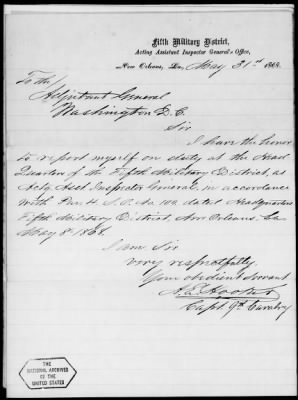 Fifth Military District,
Acting Assistant Inspector General's Office,
New Orleans, La., May 31st 1868.
To the
Adjutant General
Washington D.C.
Sir
I have the honor
to report myself on duty at the Head
Quarters of the Fifth Military District, as
Actg Asst Inspector General, in accordance
with Par 4. S.O. No 102 dated Headquarters
Fifth Military District New Orleans. La
May 8th 1868.
I am Sir
very respectfully.
Your obedient Servant
A.E. Hooker
Capt 9th Cavalry
THE
NATIONAL ARCHIVES
OF THE
UNITED STATES